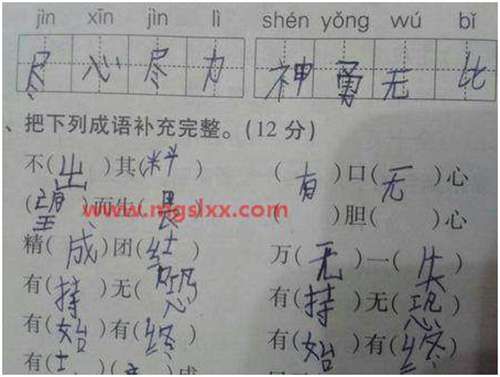 jìn xīn jìn lì shén yǒng wú bǐ
尽心尽力 神勇无比
、把下列成语补充完整。(12 分)
不(出)其(料) (有)口(无)心
(望)而生(畏) ( )胆( )心
www.mgslxx.com
精(成)团(结) 万(无)一(失)
有(持)无(恐) 有(持)无(恐)
有(始)有(终) 有(始)有(终)
有( )( )成